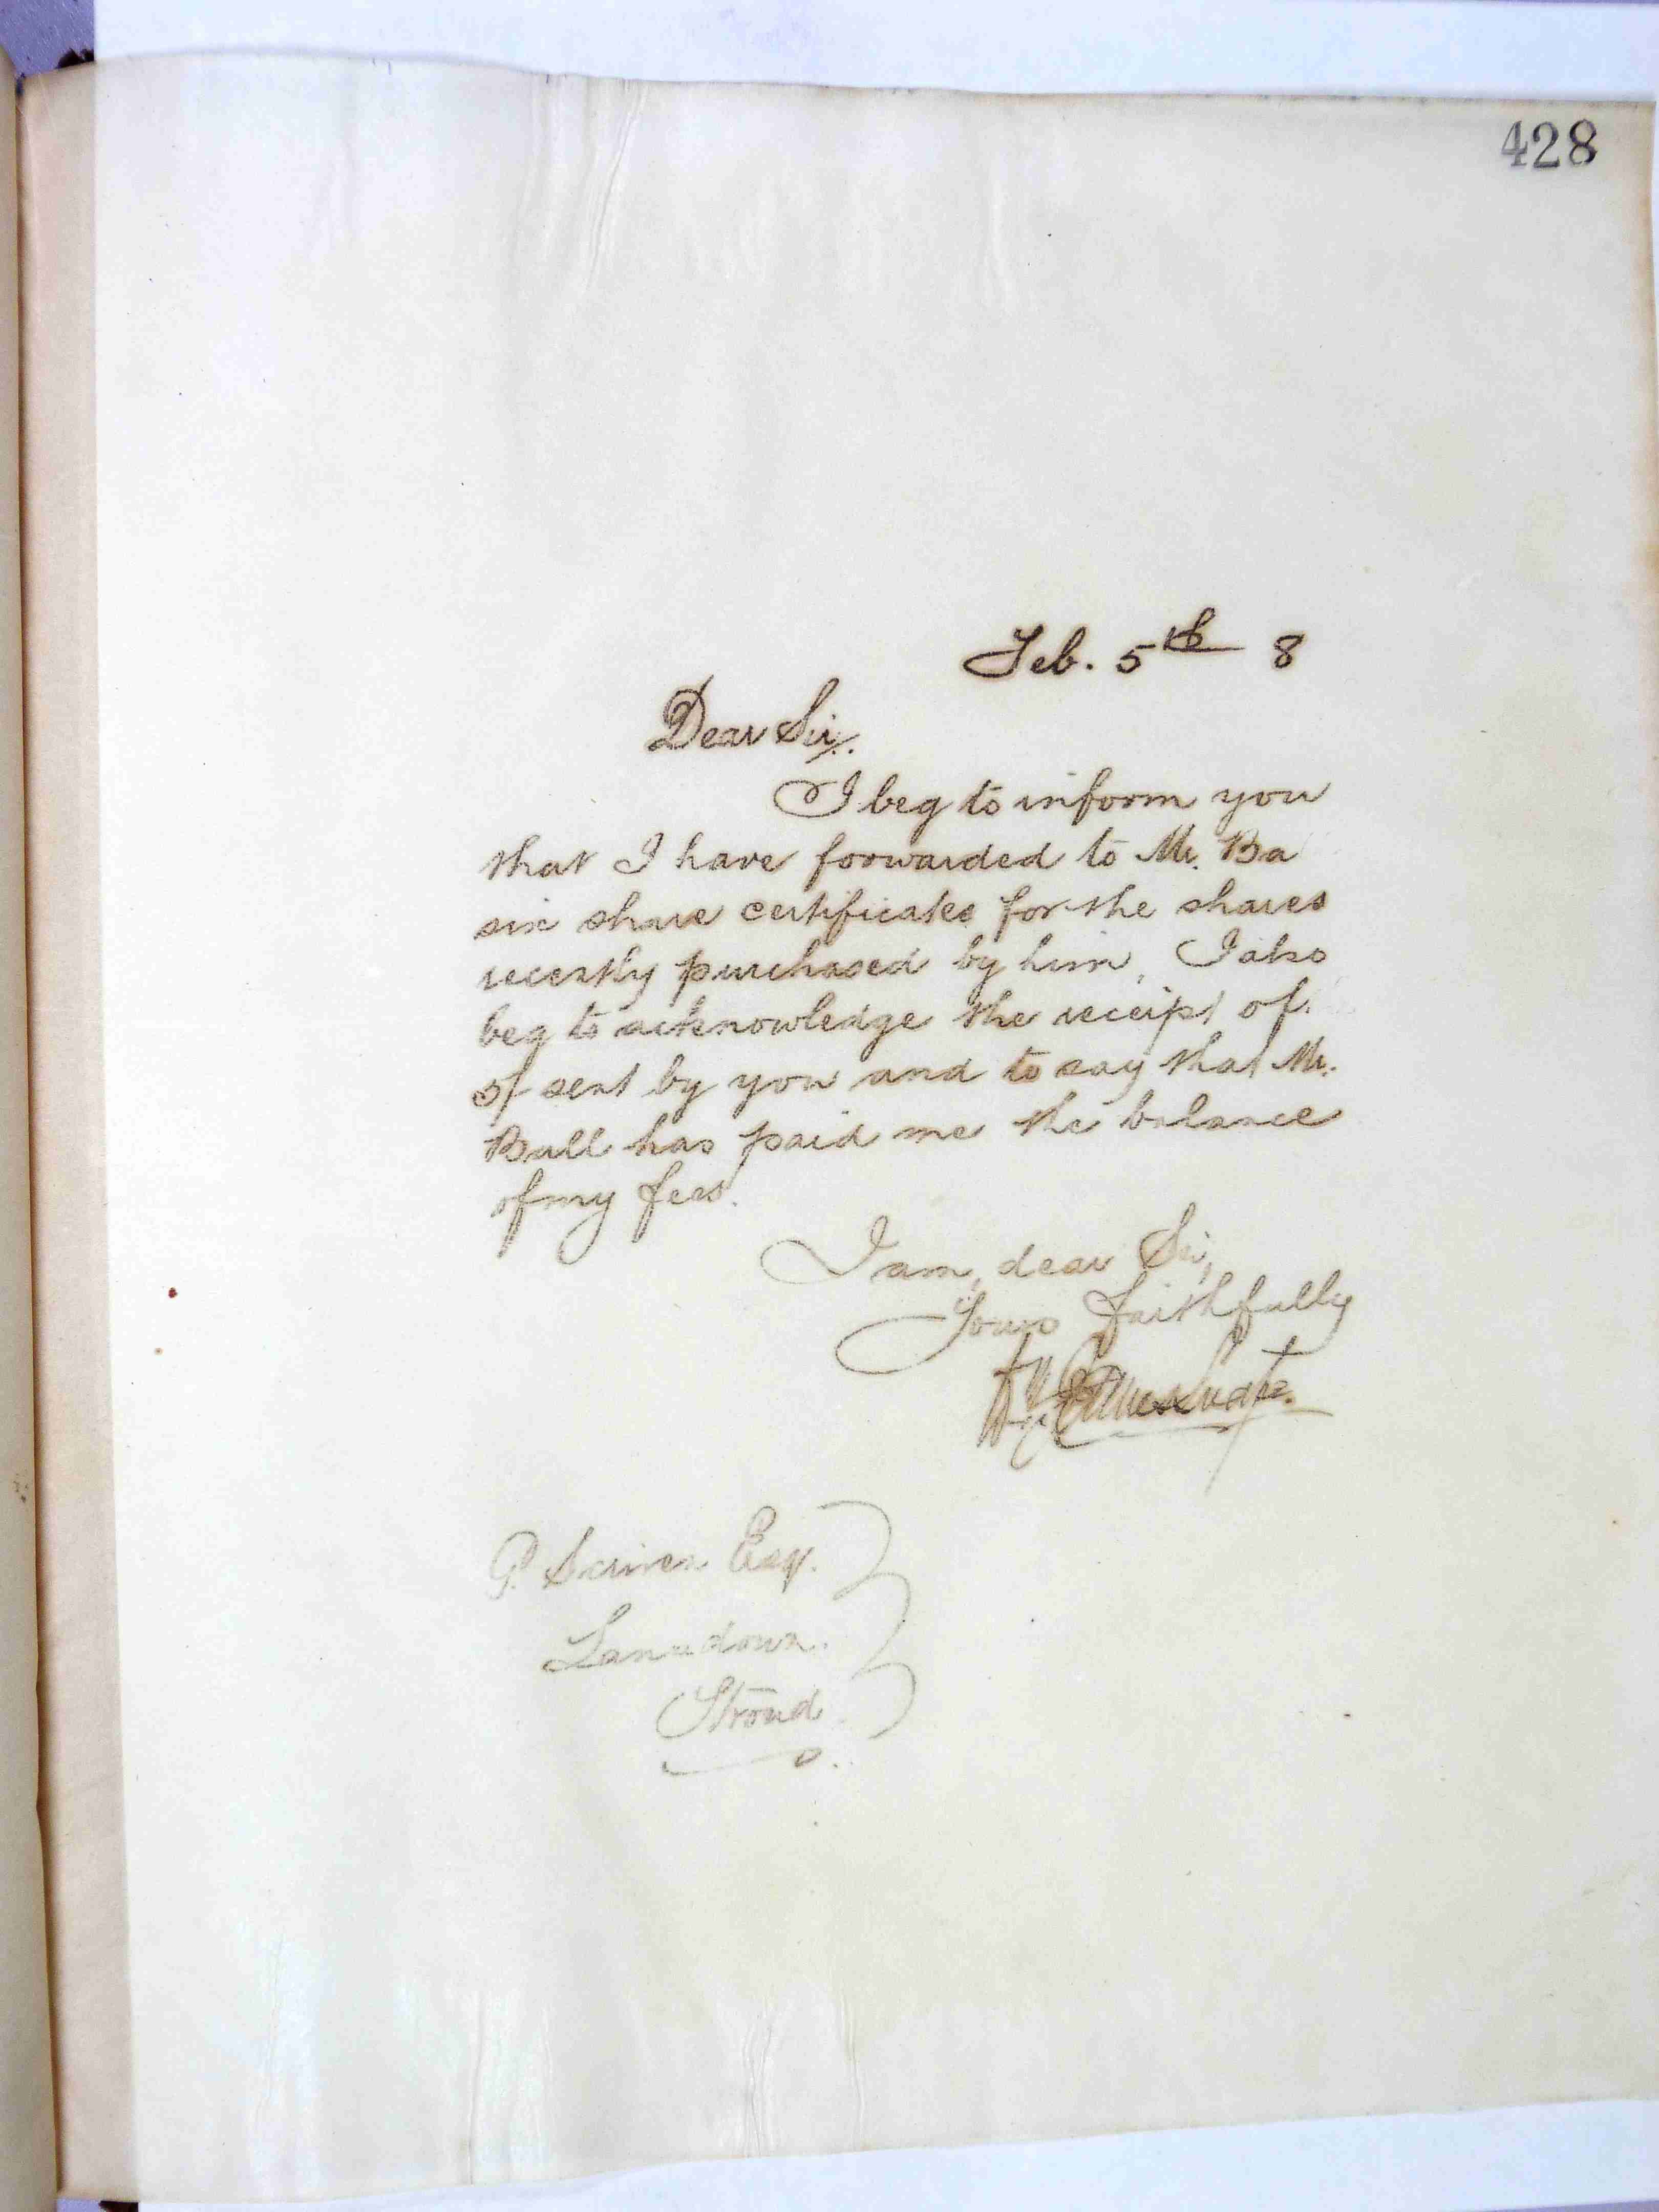 428
Feb. 5th 8
Dear Sir,
I beg to inform you
that I have forwarded to Mr. Ba
six share certificates for the shares
recently purchased by him, I also
beg to acknowledge the receipt of
5/ sent by you and to say that Mr.
Ball has paid me the balance
of my fees.
I am, dear Sir,
Yours faithfully
P. Scriven Esq.
Lansdown.
Stroud